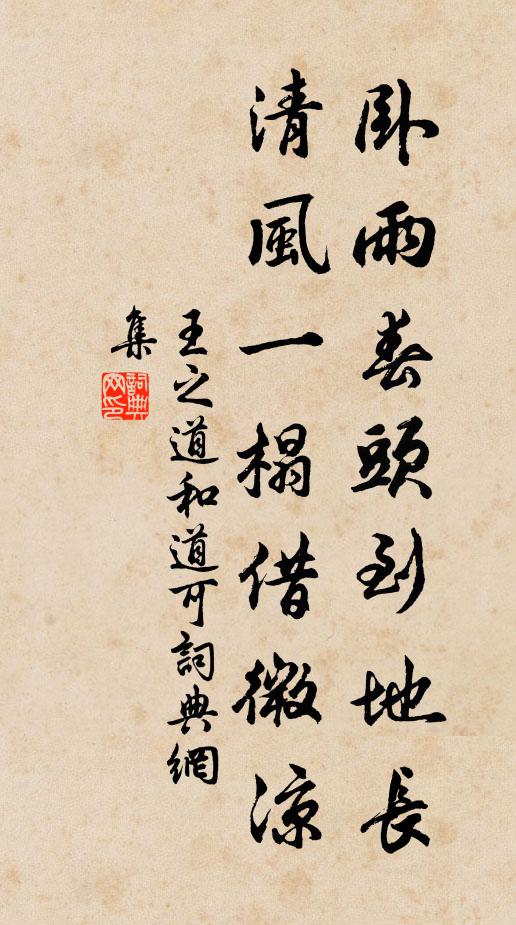 卧雨春頭到地長
清風一榻借微涼
王之道和道可詞典網
集
詞典
网印